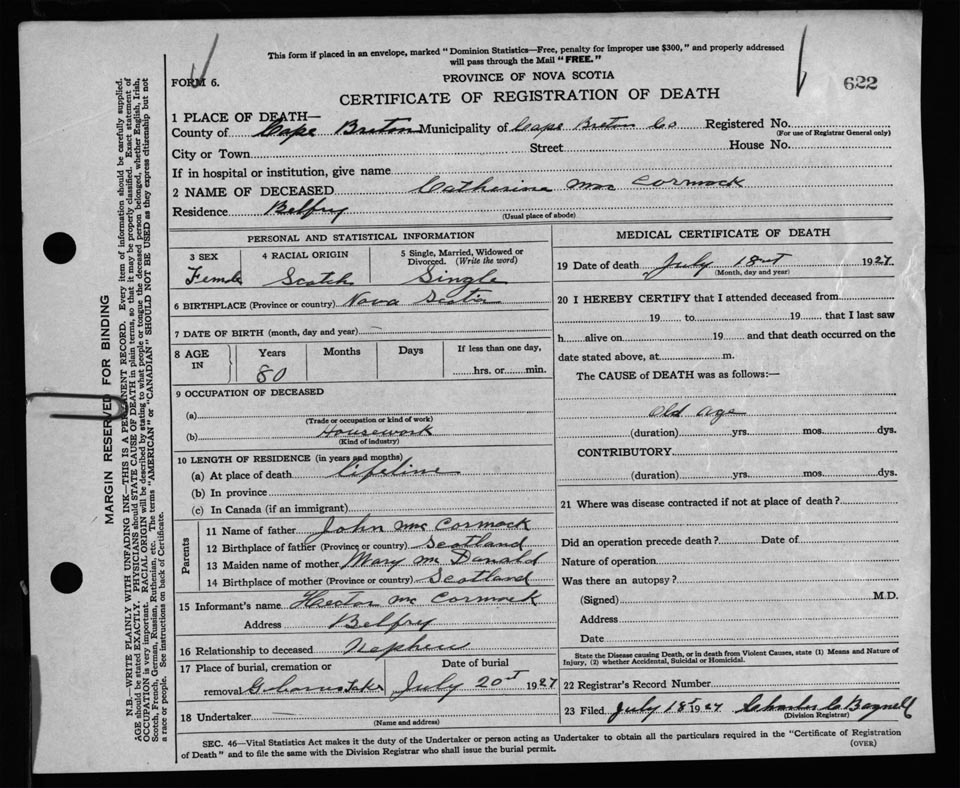 This form if placed in an envelope, marked "Dominion Statistics—Free, penalty for improper use $300," and properly addressed
will pass through the Mail "FREE."
FORM 6.
PROVINCE OF NOVA SCOTIA
622
CERTIFICATE OF REGISTRATION OF DEATH
1 PLACE OF DEATH—
County of Cape Breton Municipality of Cape Breton Co Registered No.
(For use of Registrar General only)
City or Town Street House No.
If in hospital or institution, give name
2 NAME OF DECEASED Catherine Mac Cormack
Residence Belfry
(Usual place of abode)
PERSONAL AND STATISTICAL INFORMATION
3 SEX 4 RACIAL ORIGIN 5 Single, Married, Widowed or
Divorced. (Write the word)
Female Scotch Single
6 BIRTHPLACE (Province or country) Nova Scotia
7 DATE OF BIRTH (month, day and year)
8 AGE IN Years Months Days If less than one day,
80 hrs. or min.
9 OCCUPATION OF DECEASED
(a)
(Trade or occupation or kind of work)
(b) Housework
(Kind of industry)
10 LENGTH OF RESIDENCE (in years and months)
(a) At place of death lifetime
(b) In province
(c) In Canada (if an immigrant)
Parents
11 Name of father John Mc Cormack
12 Birthplace of father (Province or country) Scotland
13 Maiden name of mother Mary Mc Donald
14 Birthplace of mother (Province or country) Scotland
15 Informant's name Hector Mc Cormack
Address Belfry
16 Relationship to deceased Nephew
17 Place of burial, cremation or Date of burial
removal July 20st 1927
18 Undertaker
(Name and address)
MEDICAL CERTIFICATE OF DEATH
19 Date of death July 18st 1927
(Month, day and year)
20 I HEREBY CERTIFY that I attended deceased from
19 to 19 that I last saw
h alive on 19 and that death occurred on the
date stated above, at m.
The CAUSE of DEATH was as follows:—
old age
(duration) yrs. mos. dys.
CONTRIBUTORY
(duration) yrs. mos. dys.
21 Where was disease contracted if not at place of death?
Did an operation precede death? Date of
Nature of operation
Was there an autopsy?
(Signed) M.D.
Address
Date
State the Disease causing Death, or in death from Violent Causes, state (1) Means and Nature of
Injury, (2) whether Accidental, Suicidal or Homicidal.
22 Registrar's Record Number
23 Filed July 18 1927 Charles C Bagnell
(Division Registrar)
SEC. 46—Vital Statistics Act makes it the duty of the Undertaker or person acting as Undertaker to obtain all the particulars required in the "Certificate of Registration
of Death" and to file the same with the Division Registrar who shall issue the burial permit.
(OVER)
MARGIN RESERVED FOR BINDING
N.B.—WRITE PLAINLY WITH UNFADING INK—THIS IS A PERMANENT RECORD. Every item of information should be carefully supplied.
AGE should be stated EXACTLY. PHYSICIANS should STATE CAUSE OF DEATH in plain terms, so that it may be properly classified. Exact statement of
OCCUPATION is very important. RACIAL ORIGIN will be described by stating to what people or tongue the deceased person belonged, whether English, Irish,
Scotch, French, German, Russian, Ruthenian, etc. The terms "AMERICAN" or "CANADIAN" SHOULD NOT BE USED as they express citizenship but not
a race or people. See instructions on back of Certificate.